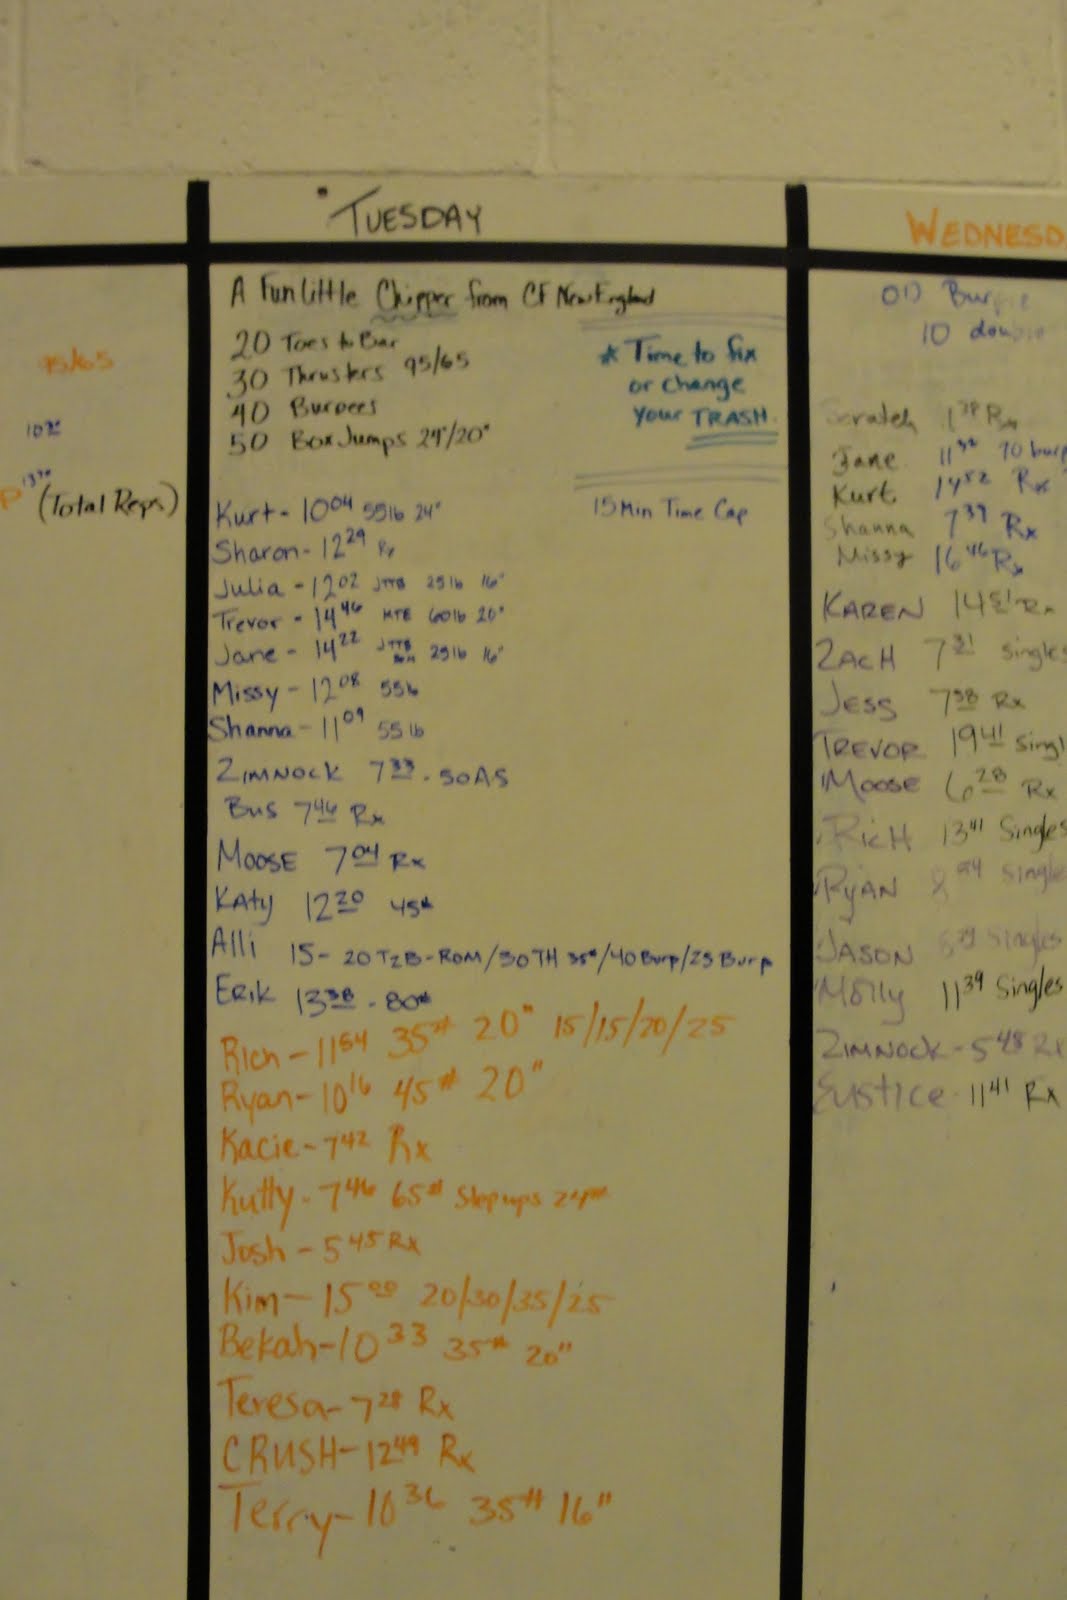 95/65
(Total Reps)
TUESDAY
A Fun Little Chipper from CF New England
20 Toes to Bar
30 Thrusters 95/65
40 Burpees
50 Box Jumps 24"/20"
* Time to fix
or change
your TRASH.
15 Min Time Cap
Kurt - 10 04 55lb 24"
Sharon - 12 29 Rx
Julia - 12 02 JTTB 25lb 16"
Trevor - 14 46 KTE 60lb 20"
Jane - 14 22 JTTB 25lb 16"
Missy - 12 08 55lb
Shanna - 11 09 55lb
ZIMNOCK 7 33 -
Bus 7 46 Rx
MOOSE 7 04 Rx
Katy 12 20 45#
Alli 15 - 20 T2B-ROM/30TH 35#/40 Burp/25 Burp
ERIK 13 38 - 80#
Rich - 11 54 35# 20" 15/15/20/25
Ryan - 10 16 45# 20"
Kacie - 7 42 Rx
Kutty - 7 46 65# Step ups
Josh - 5 45 Rx
Kim - 15 00 20/30/35/25
Bekah - 10 33 35# 20"
Teresa - 7 28 Rx
CRUSH - 12 49 Rx
Terry - 10 36 35# 16"
WEDNESD
10 doub
Jane 11
Kurt 14 52 Rx
Shanna 7 39 Rx
Missy 16 46 Rx
KAREN 14 51 Rx
ZACH 7 31 singles
JESS 7 58 Rx
TREVOR 19 41 singl
MOOSE 6 28 Rx
RICH 13 41 Singles
RYAN 8 singles
JASON singles
Molly 11 39 Singles
ZIMNOCK - 5 48 Rx
EUSTICE - 11 41 Rx